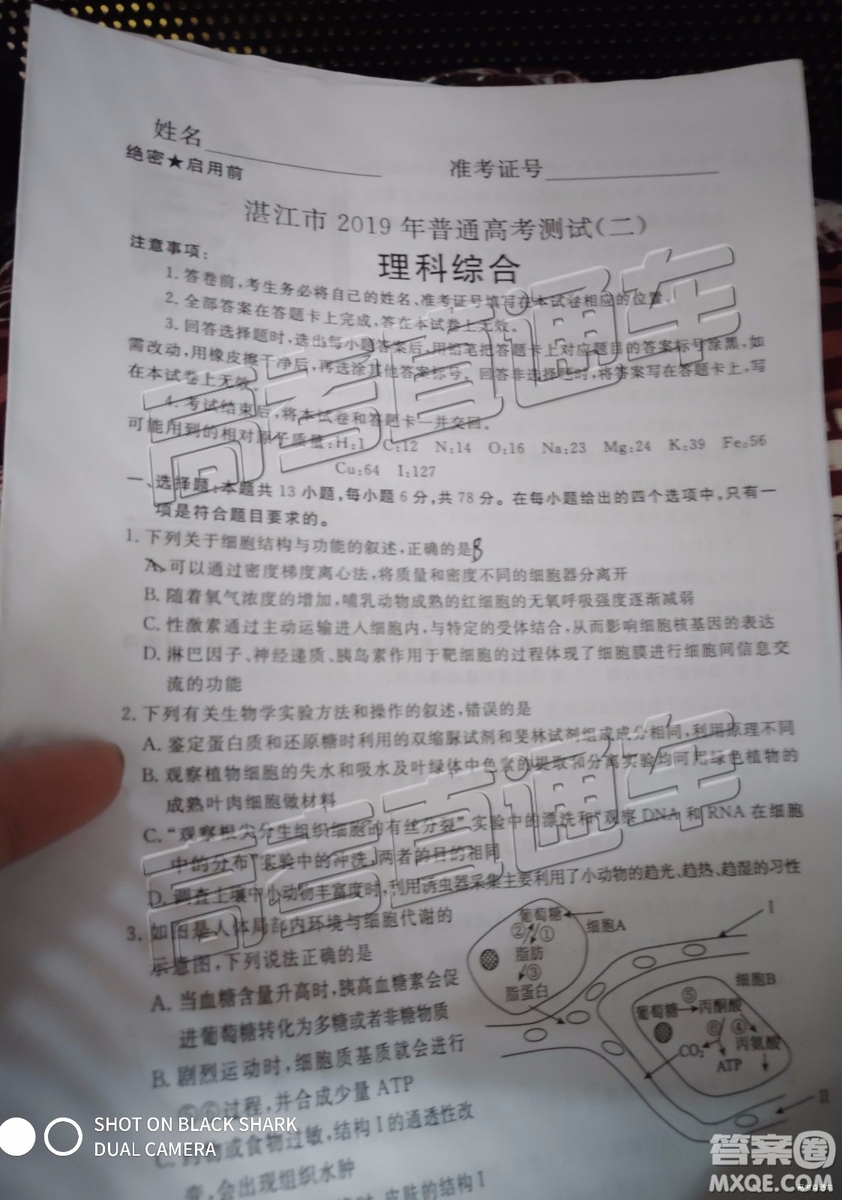 姓名
绝密★启用前
准考证号
湛江市 2019 年普通高考测试(二)
理科综合
注意事项:
1. 答卷前,考生务必将自己的姓名、准考证号填写在本试卷相应的位置.
2. 全部答案在答题卡上完成,答在本试卷上无效。
3. 回答选择题时,选出每小题答案后,用铅笔把答题卡上对应题目的答案标号涂黑,如
需改动,用橡皮擦干净后,再选涂其他答案标号。回答非选择题时,将答案写在答题卡上,写
在本试卷上无效。
4. 考试结束后,将本试卷和答题卡一并交回。
可能用到的相对原子质量:H:1 C:12 N:14 O:16 Na:23 Mg:24 K:39 Fe:56
Cu:64 I:127
一、选择题:本题共 13 小题,每小题 6 分,共 78 分。在每小题给出的四个选项中,只有一
项是符合题目要求的。
1. 下列关于细胞结构与功能的叙述,正确的是B
A. 可以通过密度梯度离心法,将质量和密度不同的细胞器分离开
B. 随着氧气浓度的增加,哺乳动物成熟的红细胞的无氧呼吸强度逐渐减弱
C. 性激素通过主动运输进入细胞内,与特定的受体结合,从而影响细胞核基因的表达
D. 淋巴因子、神经递质、胰岛素作用于靶细胞的过程体现了细胞膜进行细胞间信息交
流的功能
2. 下列有关生物学实验方法和操作的叙述,错误的是
A. 鉴定蛋白质和还原糖时利用的双缩脲试剂和斐林试剂组成成分相同,利用原理不同
B. 观察植物细胞的失水和吸水及叶绿体中色素的提取和分离实验均可用绿色植物的
成熟叶肉细胞做材料
C. “观察根尖分生组织细胞的有丝分裂”实验中的漂洗和“观察 DNA 和 RNA 在细胞
中的分布”实验中的冲洗,两者的目的相同
D. 调查土壤中小动物丰富度时,利用诱虫器采集主要利用了小动物的趋光、趋热、趋湿的习性
3. 如图是人体局部内环境与细胞代谢的
示意图,下列说法正确的是
A. 当血糖含量升高时,胰高血糖素会促
进葡萄糖转化为多糖或者非糖物质
B. 剧烈运动时,细胞质基质就会进行
⑤⑥过程,并合成少量 ATP
C. 药物或食物过敏,结构 I 的通透性改
变,会出现组织水肿
皮肤的结构 I
葡萄糖
细胞A
② ①
脂肪
③
脂蛋白
I
细胞B
葡萄糖 ⑤ 丙酮酸
⑥ ④
CO₂ 丙氨酸
ATP
II
高考直通车
高考直通车
SHOT ON BLACK SHARK
DUAL CAMERA
答案圈
MXQE.COM